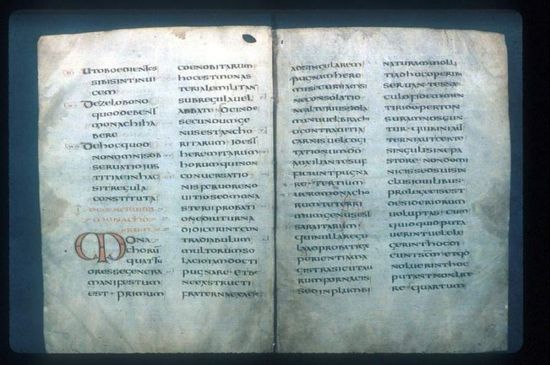 UTOBOEDIENTES
SIBISINTINUI
CEM
DEZELOBONO
QUODDEBENT
MONACHIHA
BERE
DEHOCQUOD
NONOMNISOB
SERUATIOIUS
TITIAEINHAC
SITREGULA
CONSTITUTA
MONA
CHORU
QUATT
ORESSEGENERA
MANIFESTUM
EST PRIMUM
COENOBITARUM
HOCESTMONAS
TERIALEMILITAN
SUBREGULAUEL
ABBATE DEINDE
SECUNDUMGE
NUSESTANCHO
RITARUM IDEST
HEREMITARUM
HORUMQUINON
CONUERSATIO
NISFERUORENO
UITIOSEDMONA
STERIIPROBATI
ONEDIUTURNA
DIDICERINTCON
TRADIABULUM
MULTORUMSO
LACIOIAMDOCTI
PUGNARE ETBE
NEEXSTRUCTI
FRATERNAEXACIE
ADSINGULAREM
PUGNAMHERE
NECONSOLATIO
NEALTERIUSSOLA
MANUUELBRACH
IOCONTRAUITIA
CARNISUELCOGI
TATIONUMDO
AUXILIANTESUF
FICIUNTPUGNA
RE TERTIUM
UEROMONACHO
RUMTAETERRI
MUMGENUSEST
SARABAITARUM
QUINULLAREGU
LAADPROBATIEX
PERIENTIAMA
GISTRASICUTAU
RUMFORNACIS
SEDINPLUMBI
NATURAMMOLLI
TIADHUCOPERIB
SERUANTESSAE
CULOFIDEMMEN
TIRIDOPERTON
SURAMNOSCUN
TUR QUIBINIAUT
TERNIAUTCERTE
SINGULISINEPA
STORE NONDOMI
NICISSEDSUISIN
CLUSIOUILIBUS
PROLEGEEISEST
DESIDERIORUM
UOLUPTAS CUM
GERINTHOC
NOLUERINTHOC
PUTANTNONLICE
RE QUARTUM